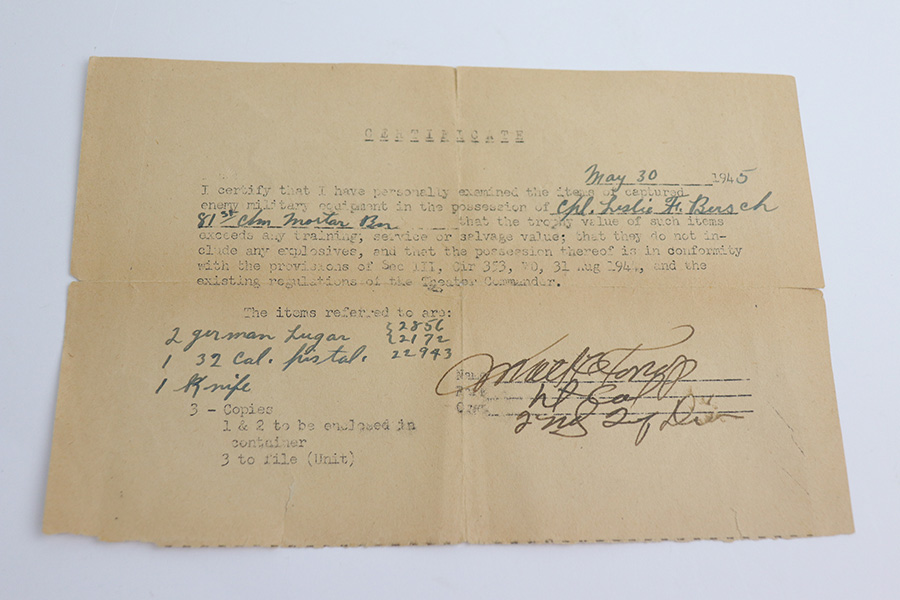 CERTIFICATE
May 30 1945
I certify that I have personally examined the items of captured
enemy military equipment in the possession of Cpl. Leslie F. Bersch
81st Chm Mortar Bn that the trophy value of such items
exceeds any training, service or salvage value; that they do not in-
clude any explosives, and that the possession thereof is in conformity
with the provisions of Sec III, Cir 353, WD, 31 Aug 1944, and the
existing regulations of the Theater Commander.
The items referred to are:
2 german Lugar { 2856
{ 2172
1 32 Cal. pistal. 22943
1 Knife
Name
Lt Col
2nd Div
3 - Copies
1 & 2 to be enclosed in
container
3 to file (Unit)